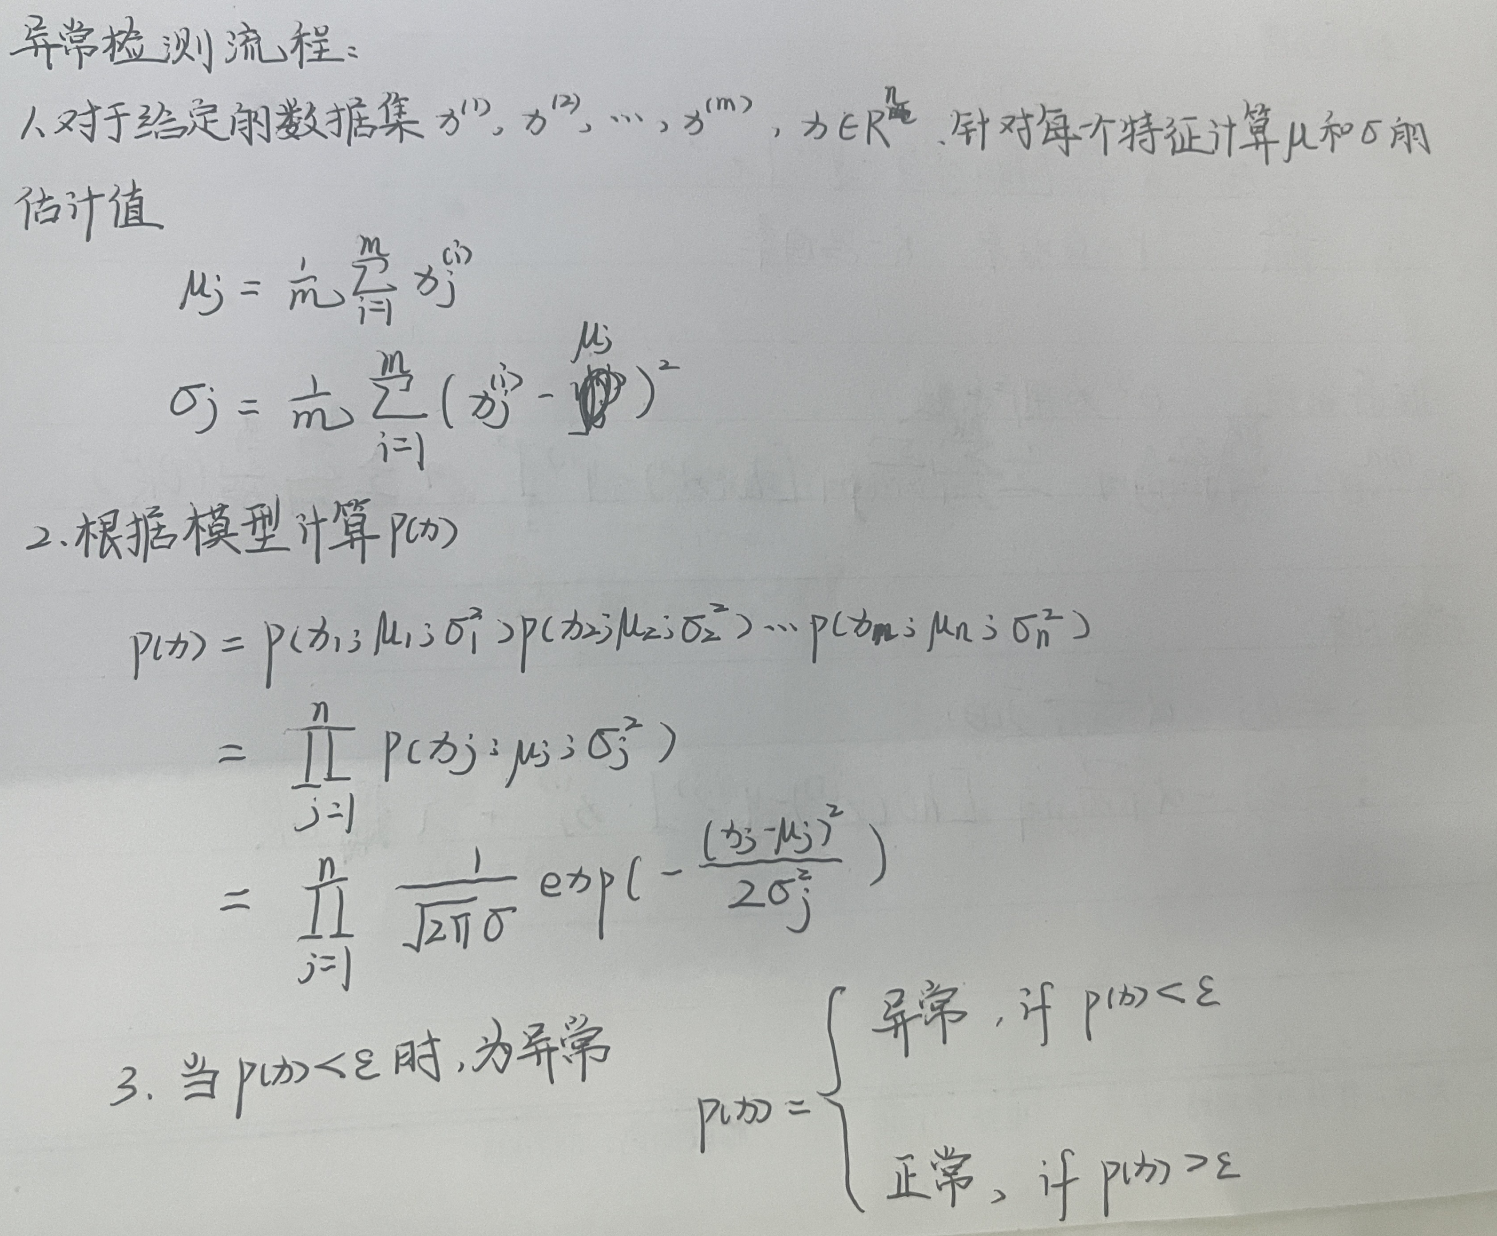 异常检测流程：
1、对于给定的数据集 x^(1), x^(2), …, x^(m), x∈R^n、针对每个特征计算μ和σ的
估计值
μj = 1/m ∑_{i=1}^{m} xj^(i)
σj = 1/m ∑_{i=1}^{m} (xj^(i) - μj)^2
2、根据模型计算P(x)
P(x) = p(x1; μ1; σ1^2) p(x2; μ2; σ2^2) … p(xn; μn; σn^2)
= ∏_{j=1}^{n} P(xj; μj; σj^2)
= ∏_{j=1}^{n} 1/(√2π σ) exp( - (xj-μj)^2 / 2σj^2 )
3. 当p(x)<ε时,为异常
p(x) = { 异常, if p(x)<ε
正常、if p(x)>ε